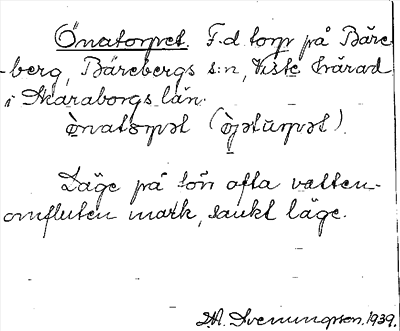 Önatorpet. F.d. torp på Bäre-
-berg, Bärebergs s:n, Viste härad
i Skaraborgs län.
ò̱natorpət (ò̱jətu̇rpət).
Läge på sön ofta vatten-
omfluten mark, sankt läge.
D.A. Svenungsson. 1939.